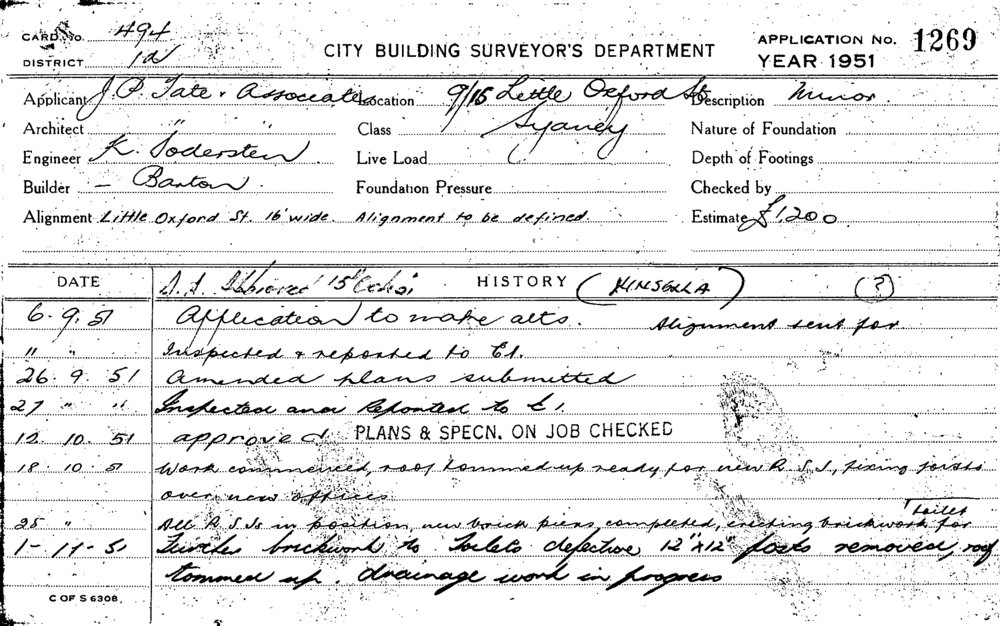 CARD No. 494
DISTRICT 1a
CITY BUILDING SURVEYOR'S DEPARTMENT
APPLICATION No. 1269
YEAR 1951
Applicant J. P. Tate & Associates Location 9/15 Little Oxford St Description Minor.
Architect " " Class Sydney Nature of Foundation
Engineer K. Soderstein Live Load Depth of Footings
Builder – Barton. Foundation Pressure Checked by
Alignment Little Oxford St. 16' wide. Alignment to be defined. Estimate £1,200
DATE HISTORY (KINSELLA) (?)
6.9.51 Application to make alts. Alignment sent for
" " Inspected & reported to
26.9.51 Amended plans submitted
27 " " Inspected and Reported to
12.10.51 approved PLANS & SPECN. ON JOB CHECKED
18.10.51 Work commenced, roof tommed up ready for new R.S.J., fixing joists
over new offices
toilet
25 " All R.S.Js in position, new brick piers completed, erecting brickwork for
1-11-51 Further brickwork to Toilets defective 12"x12" posts removed, roof
tommed up. drainage work in progress
C OF S 6308.